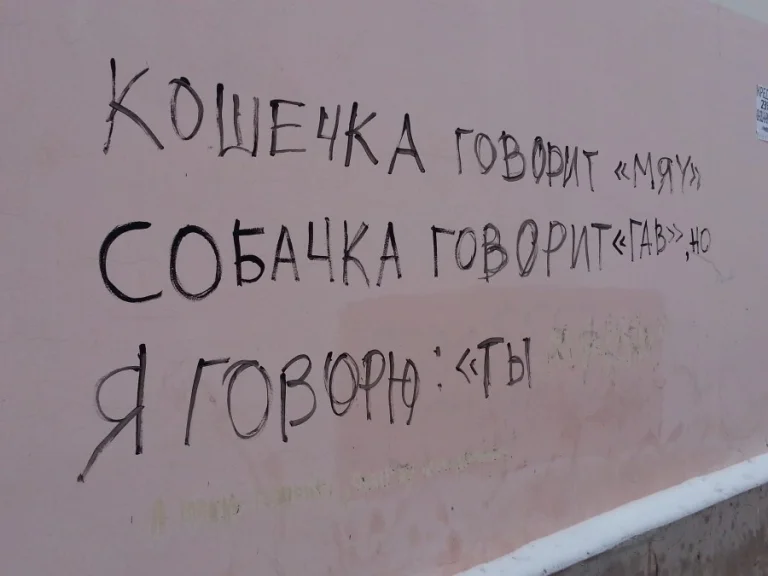 КОШЕЧКА ГОВОРИТ «МЯУ»
СОБАЧКА ГОВОРИТ «ГАВ», НО
Я ГОВОРЮ: «ТЫ